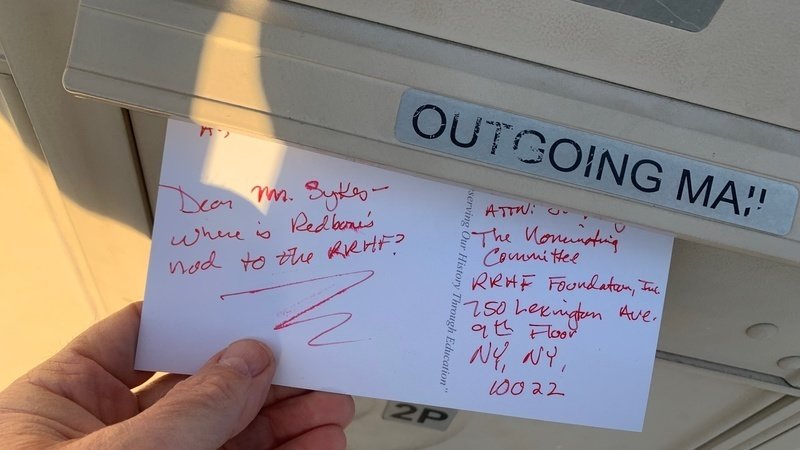 OUTGOING MAIL
Dear Mr. Sykes—
where is Redbone's
nod to the RRHF?
serving Our History Through Education"
ATTN:
The Nominating
Committee
RRHF Foundation, Inc
750 Lexington Ave.
9th Floor
NY, NY,
10022
2P